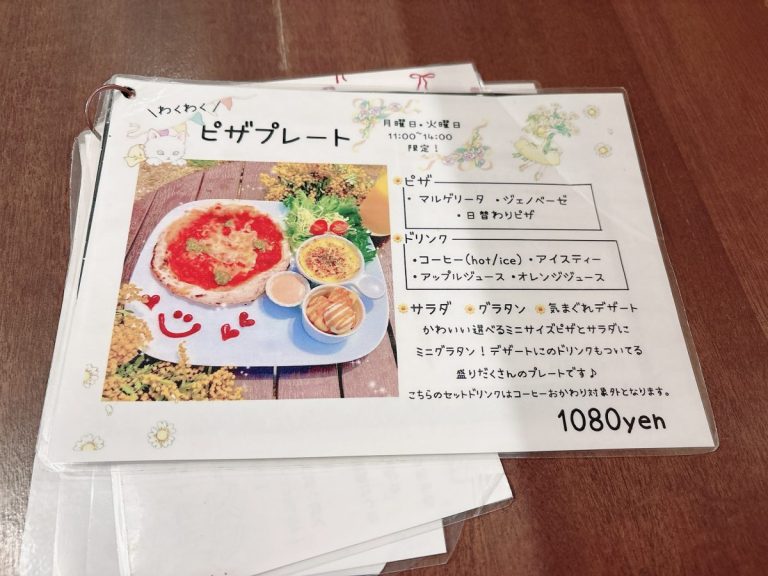 \わくわく/
ピザプレート
月曜日・火曜日
11:00~14:00
限定!
ピザ
・マルゲリータ ・ジェノベーゼ
・日替わりピザ
ドリンク
・コーヒー(hot/ice) ・アイスティー
・アップルジュース ・オレンジジュース
サラダ グラタン 気まぐれデザート
かわいい選べるミニサイズピザとサラダに
ミニグラタン!デザートにのドリンクもついてる
盛りだくさんのプレートです♪
こちらのセットドリンクはコーヒーおかわり対象外となります。
1080yen